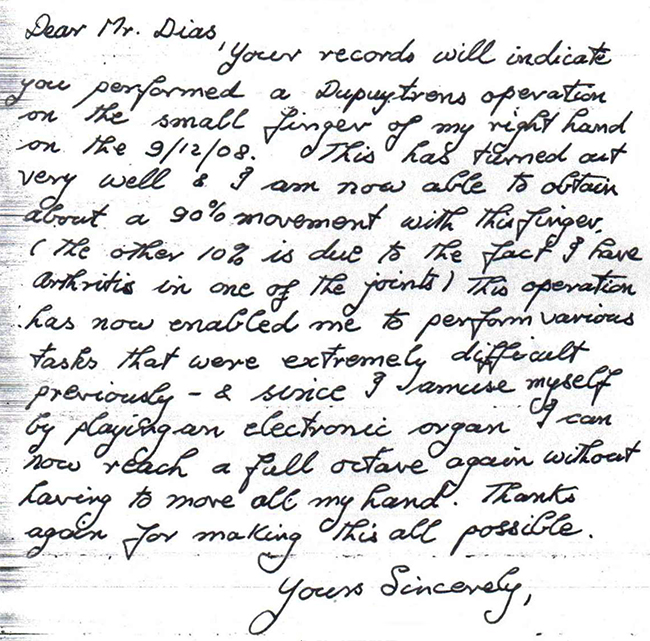 Dear Mr. Dias,
Your records will indicate
you performed a Dupuytrens operation
on the small finger of my right hand
on the 9/12/08. This has turned out
very well & I am now able to obtain
about a 90% movement with this finger.
(The other 10% is due to the fact I have
Arthritis in one of the joints) This operation
has now enabled me to perform various
tasks that were extremely difficult
previously - & since I amuse myself
by playing an electronic organ I can
now reach a full octave again without
having to move all my hand. Thanks
again for making this all possible.
Yours Sincerely,